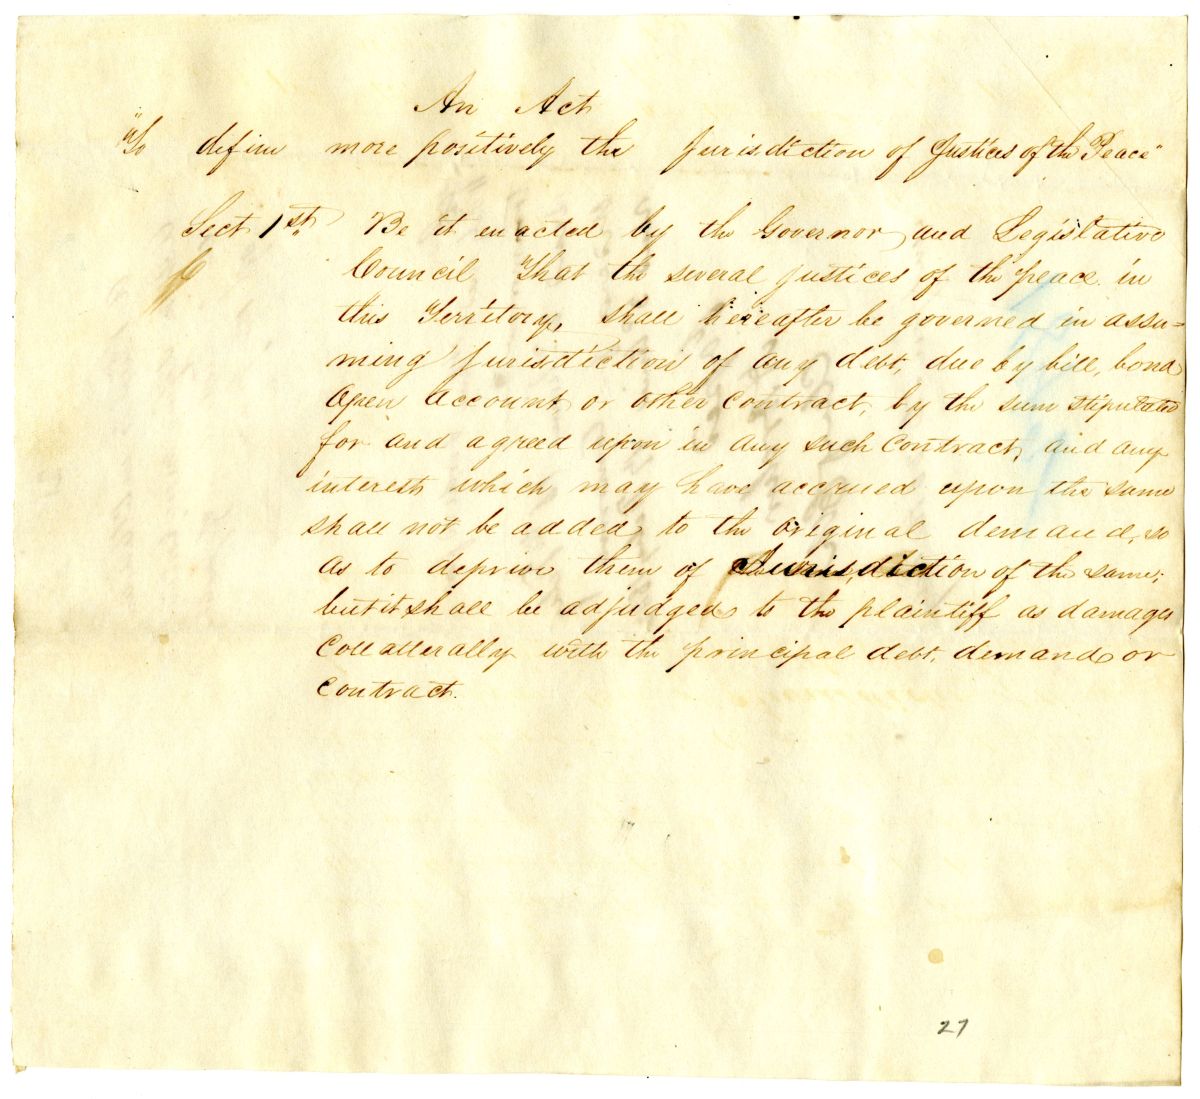 An Act
"To define more positively the Jurisdiction of Justices of the Peace"
Sect 1st. Be it enacted by the Governor and Legislative
Council That the several justices of the peace in
this Territory, shall hereafter be governed in assu=
ming Jurisdiction of any debt, due by bill, bond
open account, or other contract, by the sum stipulated
for and agreed upon in any such contract, and any
interest which may have accrued upon the same
shall not be added to the original demand, so
as to deprive them of Jurisdiction of the same;
but it shall be adjudged to the plaintiff as damages
collatterally with the principal debt, demand or
contract.
27